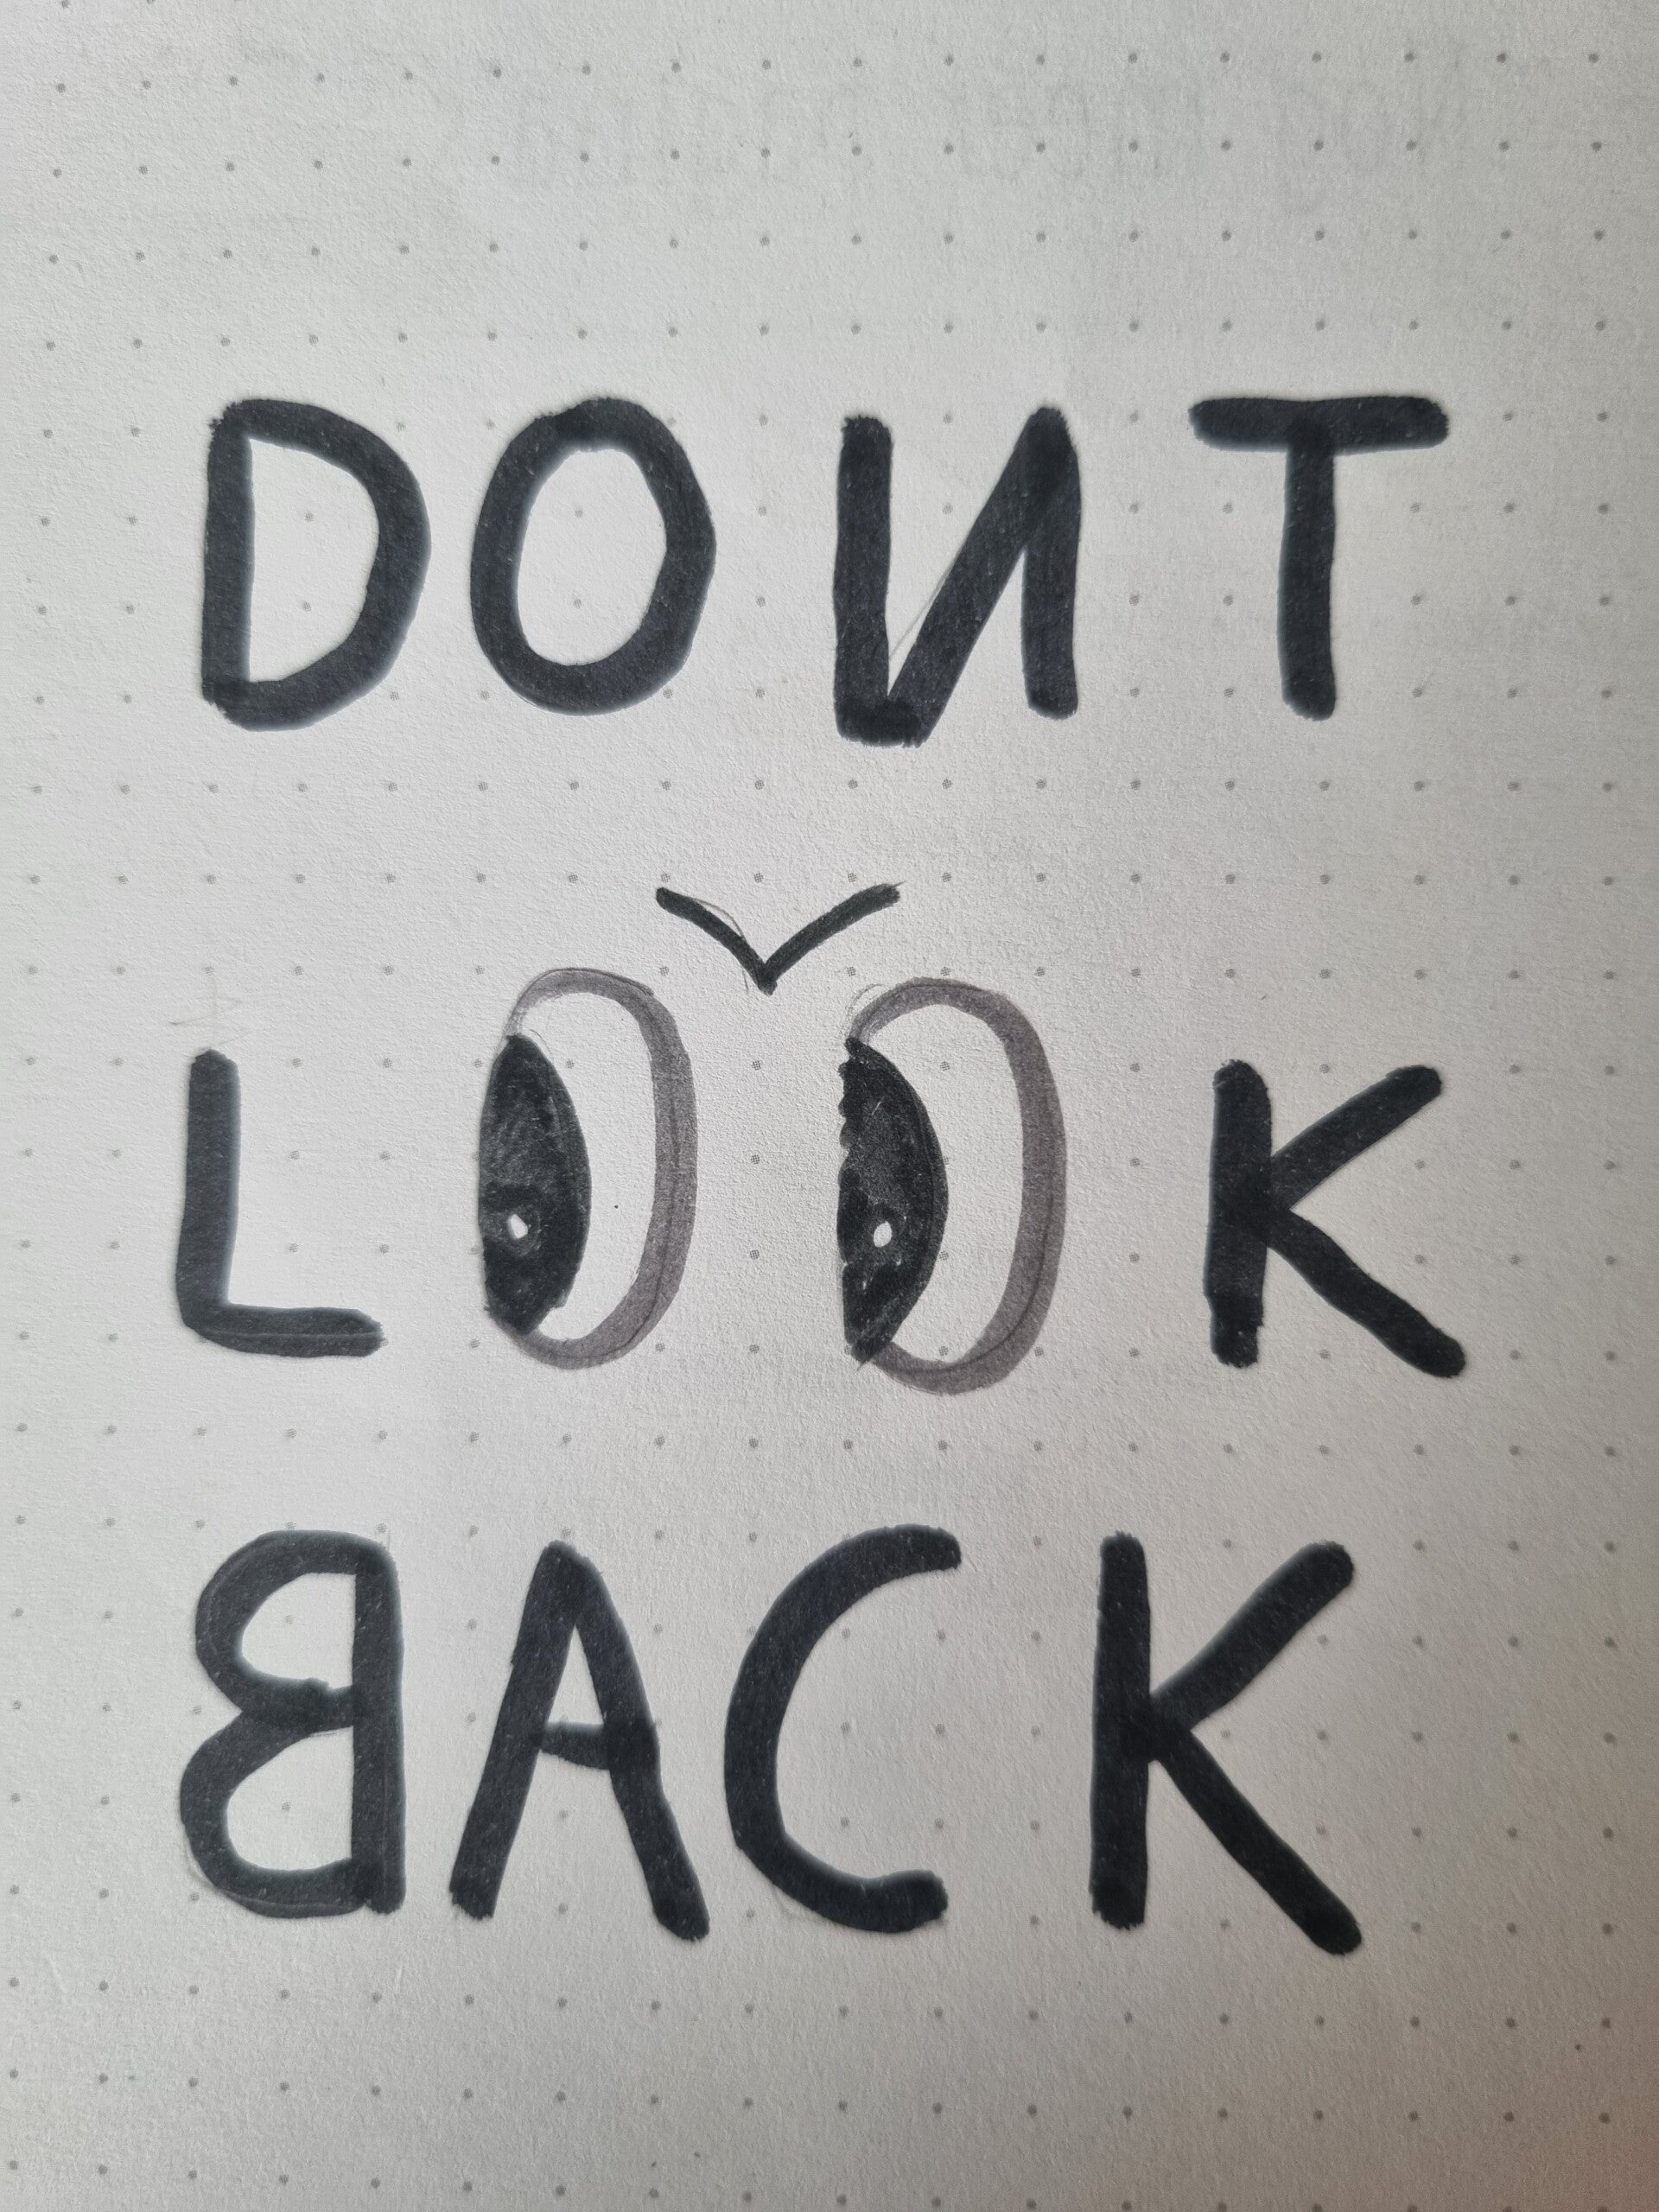 DONT
LOOK
BACK